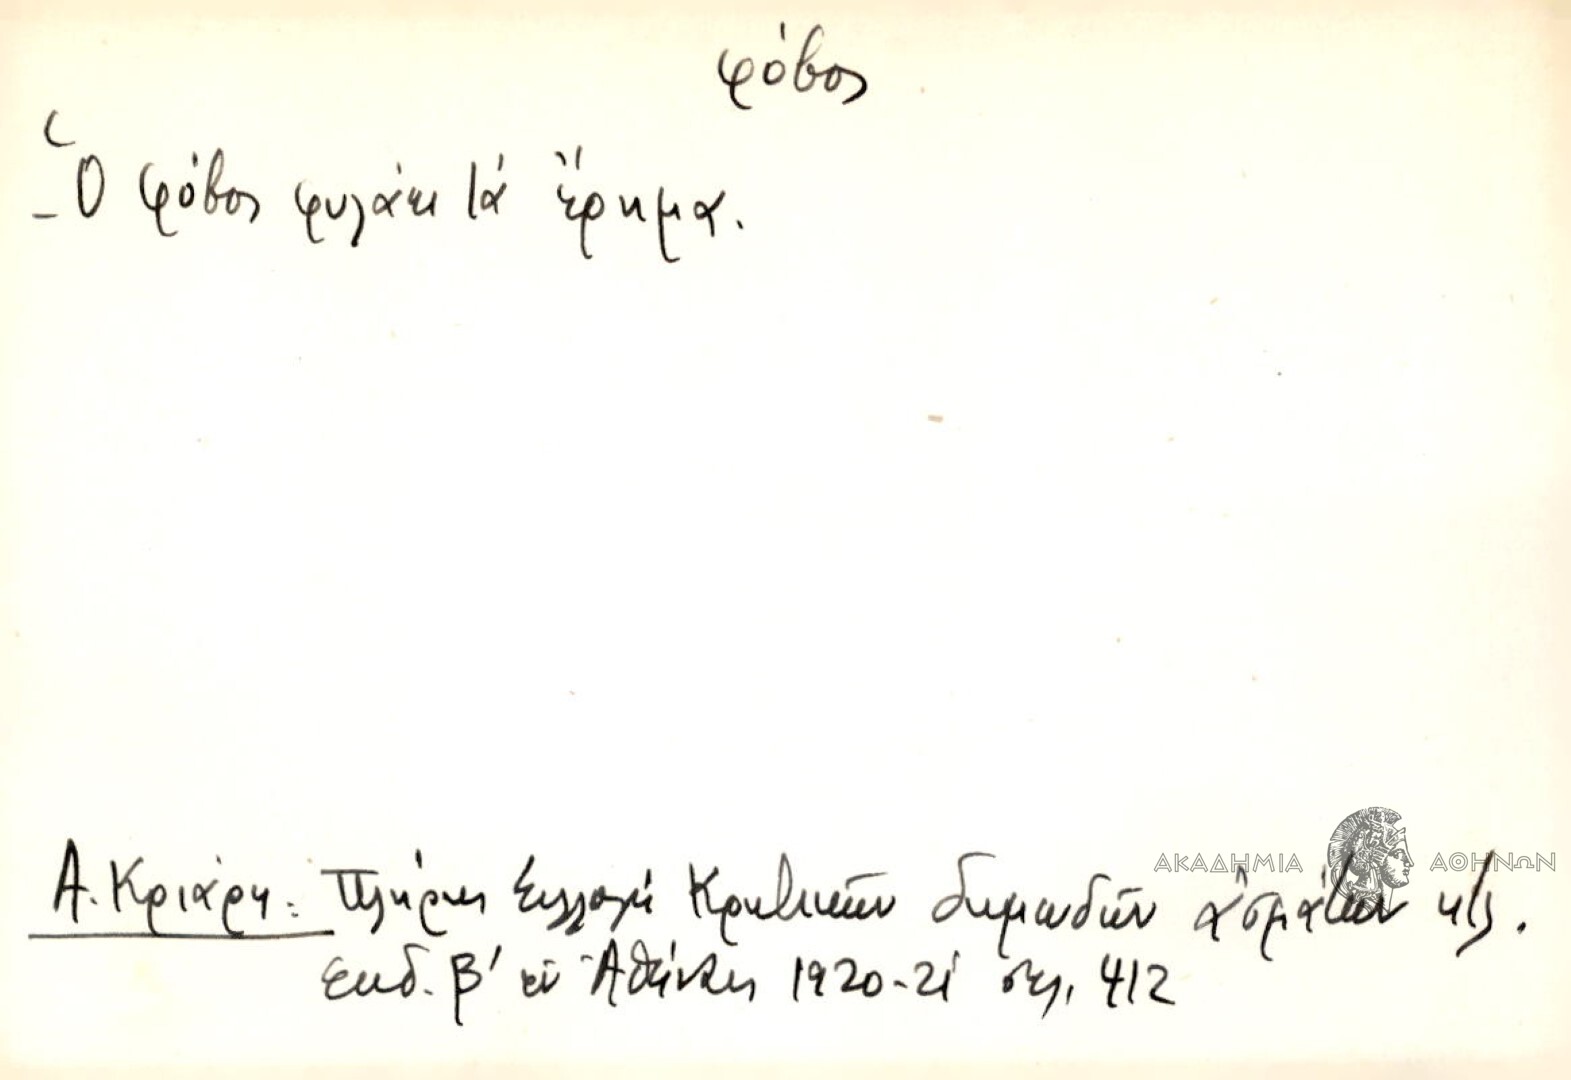 φόβος
- Ὁ φόβος φυλάει τά ἔρημα.
ΑΚΑΔΗΜΙΑ ΑΘΗΝΩΝ
Α. Κριάρη: Πλήρης Συλλογή Κρητικῶν δημωδῶν ἀσμάτων κ.λ.
Ἐκδ. β' ἐν Ἀθήναις 1920-21 σελ. 412